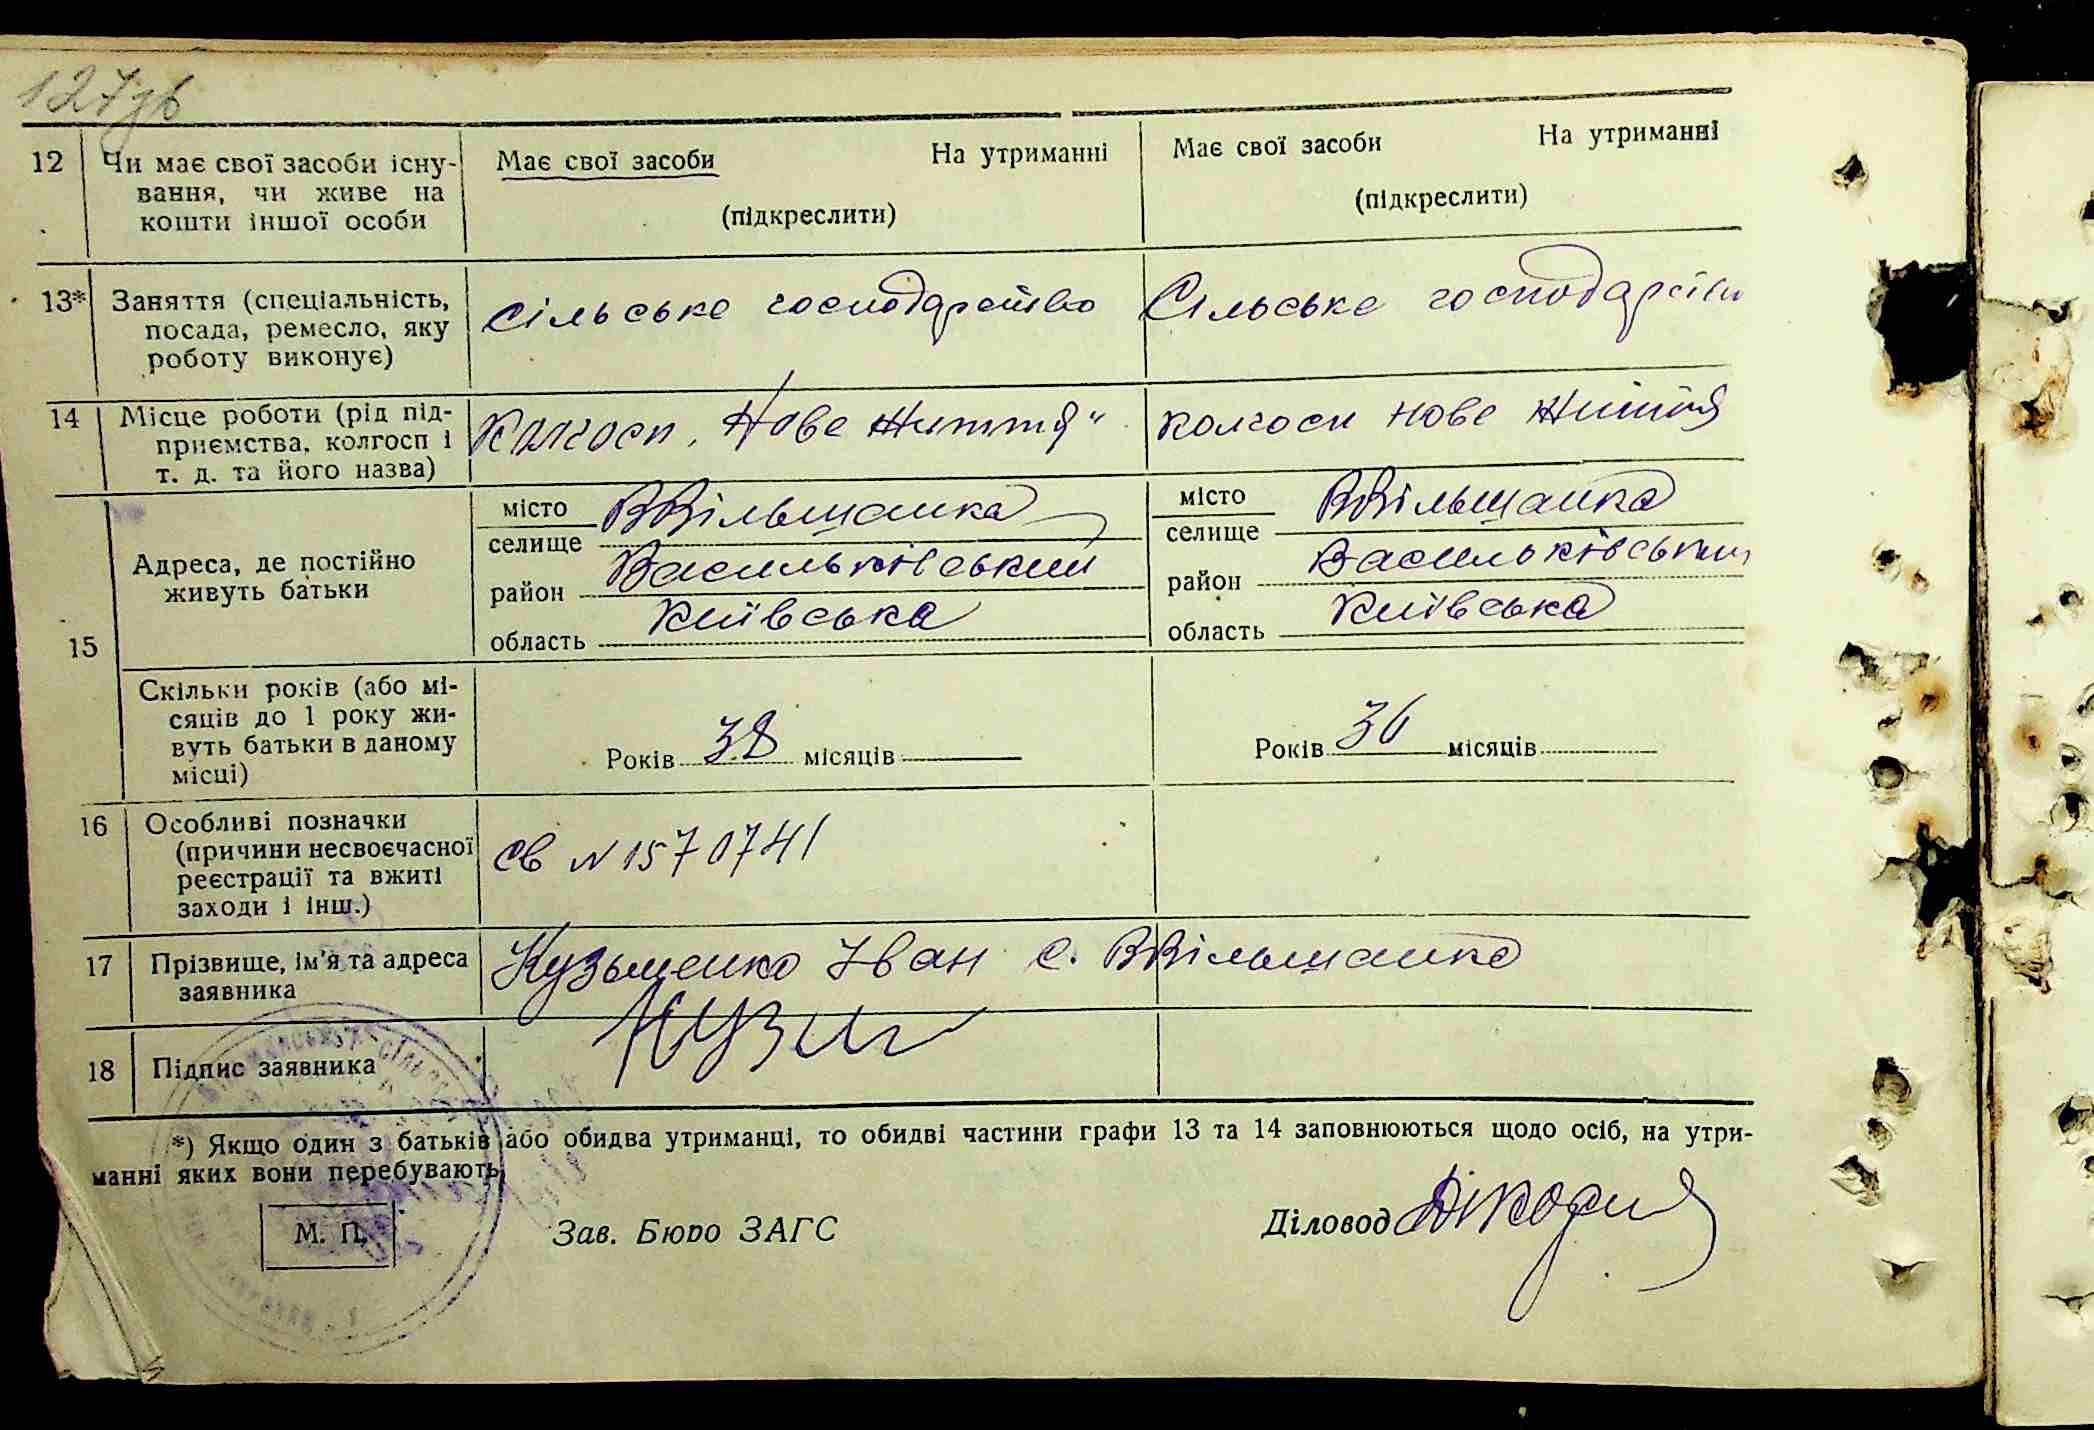 127зв
12 Чи має свої засоби існу- Має свої засоби На утриманні Має свої засоби На утриманні
вання, чи живе на
кошти іншої особи (підкреслити) (підкреслити)
13* Заняття (спеціальність, сільське господарство Сільське господарство
посада, ремесло, яку
роботу виконує)
14 Місце роботи (рід під- Колгосп „Нове Життя" колгосп нове життя
приємства, колгосп і
т. д. та його назва)
15 Адреса, де постійно живуть батьки
місто ВВільшанка місто ВВільшанка
селище селище
район Васильківський район Васильківський
область Київська область Київська
Скільки років (або мі-
сяців до 1 року жи-
вуть батьки в даному
місці)
Років 38 місяців Років 36 місяців
16 Особливі позначки
(причини несвоєчасної св N 1570741
реєстрації та вжиті
заходи і інш.)
17 Прізвище, ім'я та адреса Кузьменко Іван с. ВВільшанка
заявника
18 Підпис заявника Кузм
*) Якщо один з батьків або обидва утриманці, то обидві частини графи 13 та 14 заповнюються щодо осіб, на утри-
манні яких вони перебувають.
М. П. Зав. Бюро ЗАГС Діловод